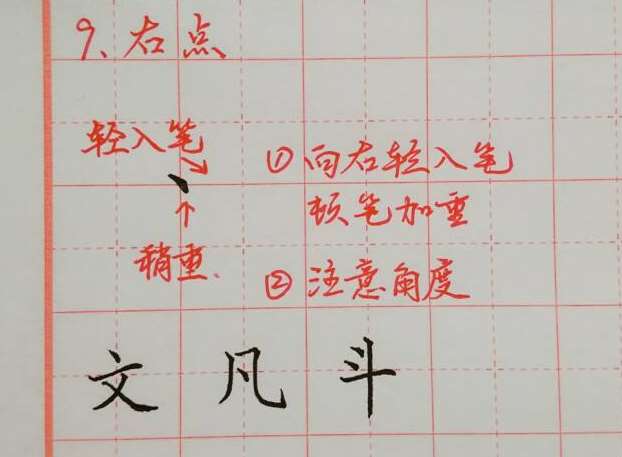 9、右点
轻入笔
①向右轻入笔
顿笔加重
稍重.
②注意角度
文凡斗